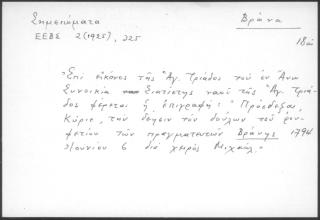 Σημειώματα
Βράνα
ΕΕΒΣ 2 (1925), 225
18αι
"Επί εικόνος της Αγ. Τριάδος του εν Άνω
Συνοικία Σιατίστης ναού της Αγ. Τριά-
δος φέρεται η επιγραφή: "Πρόσδεξαι,
Κύριε, την δέησιν των δούλων του
των πραγματευτών Βράνης 1794
Ιουνίου 6 διά χειρός Μιχαήλ."